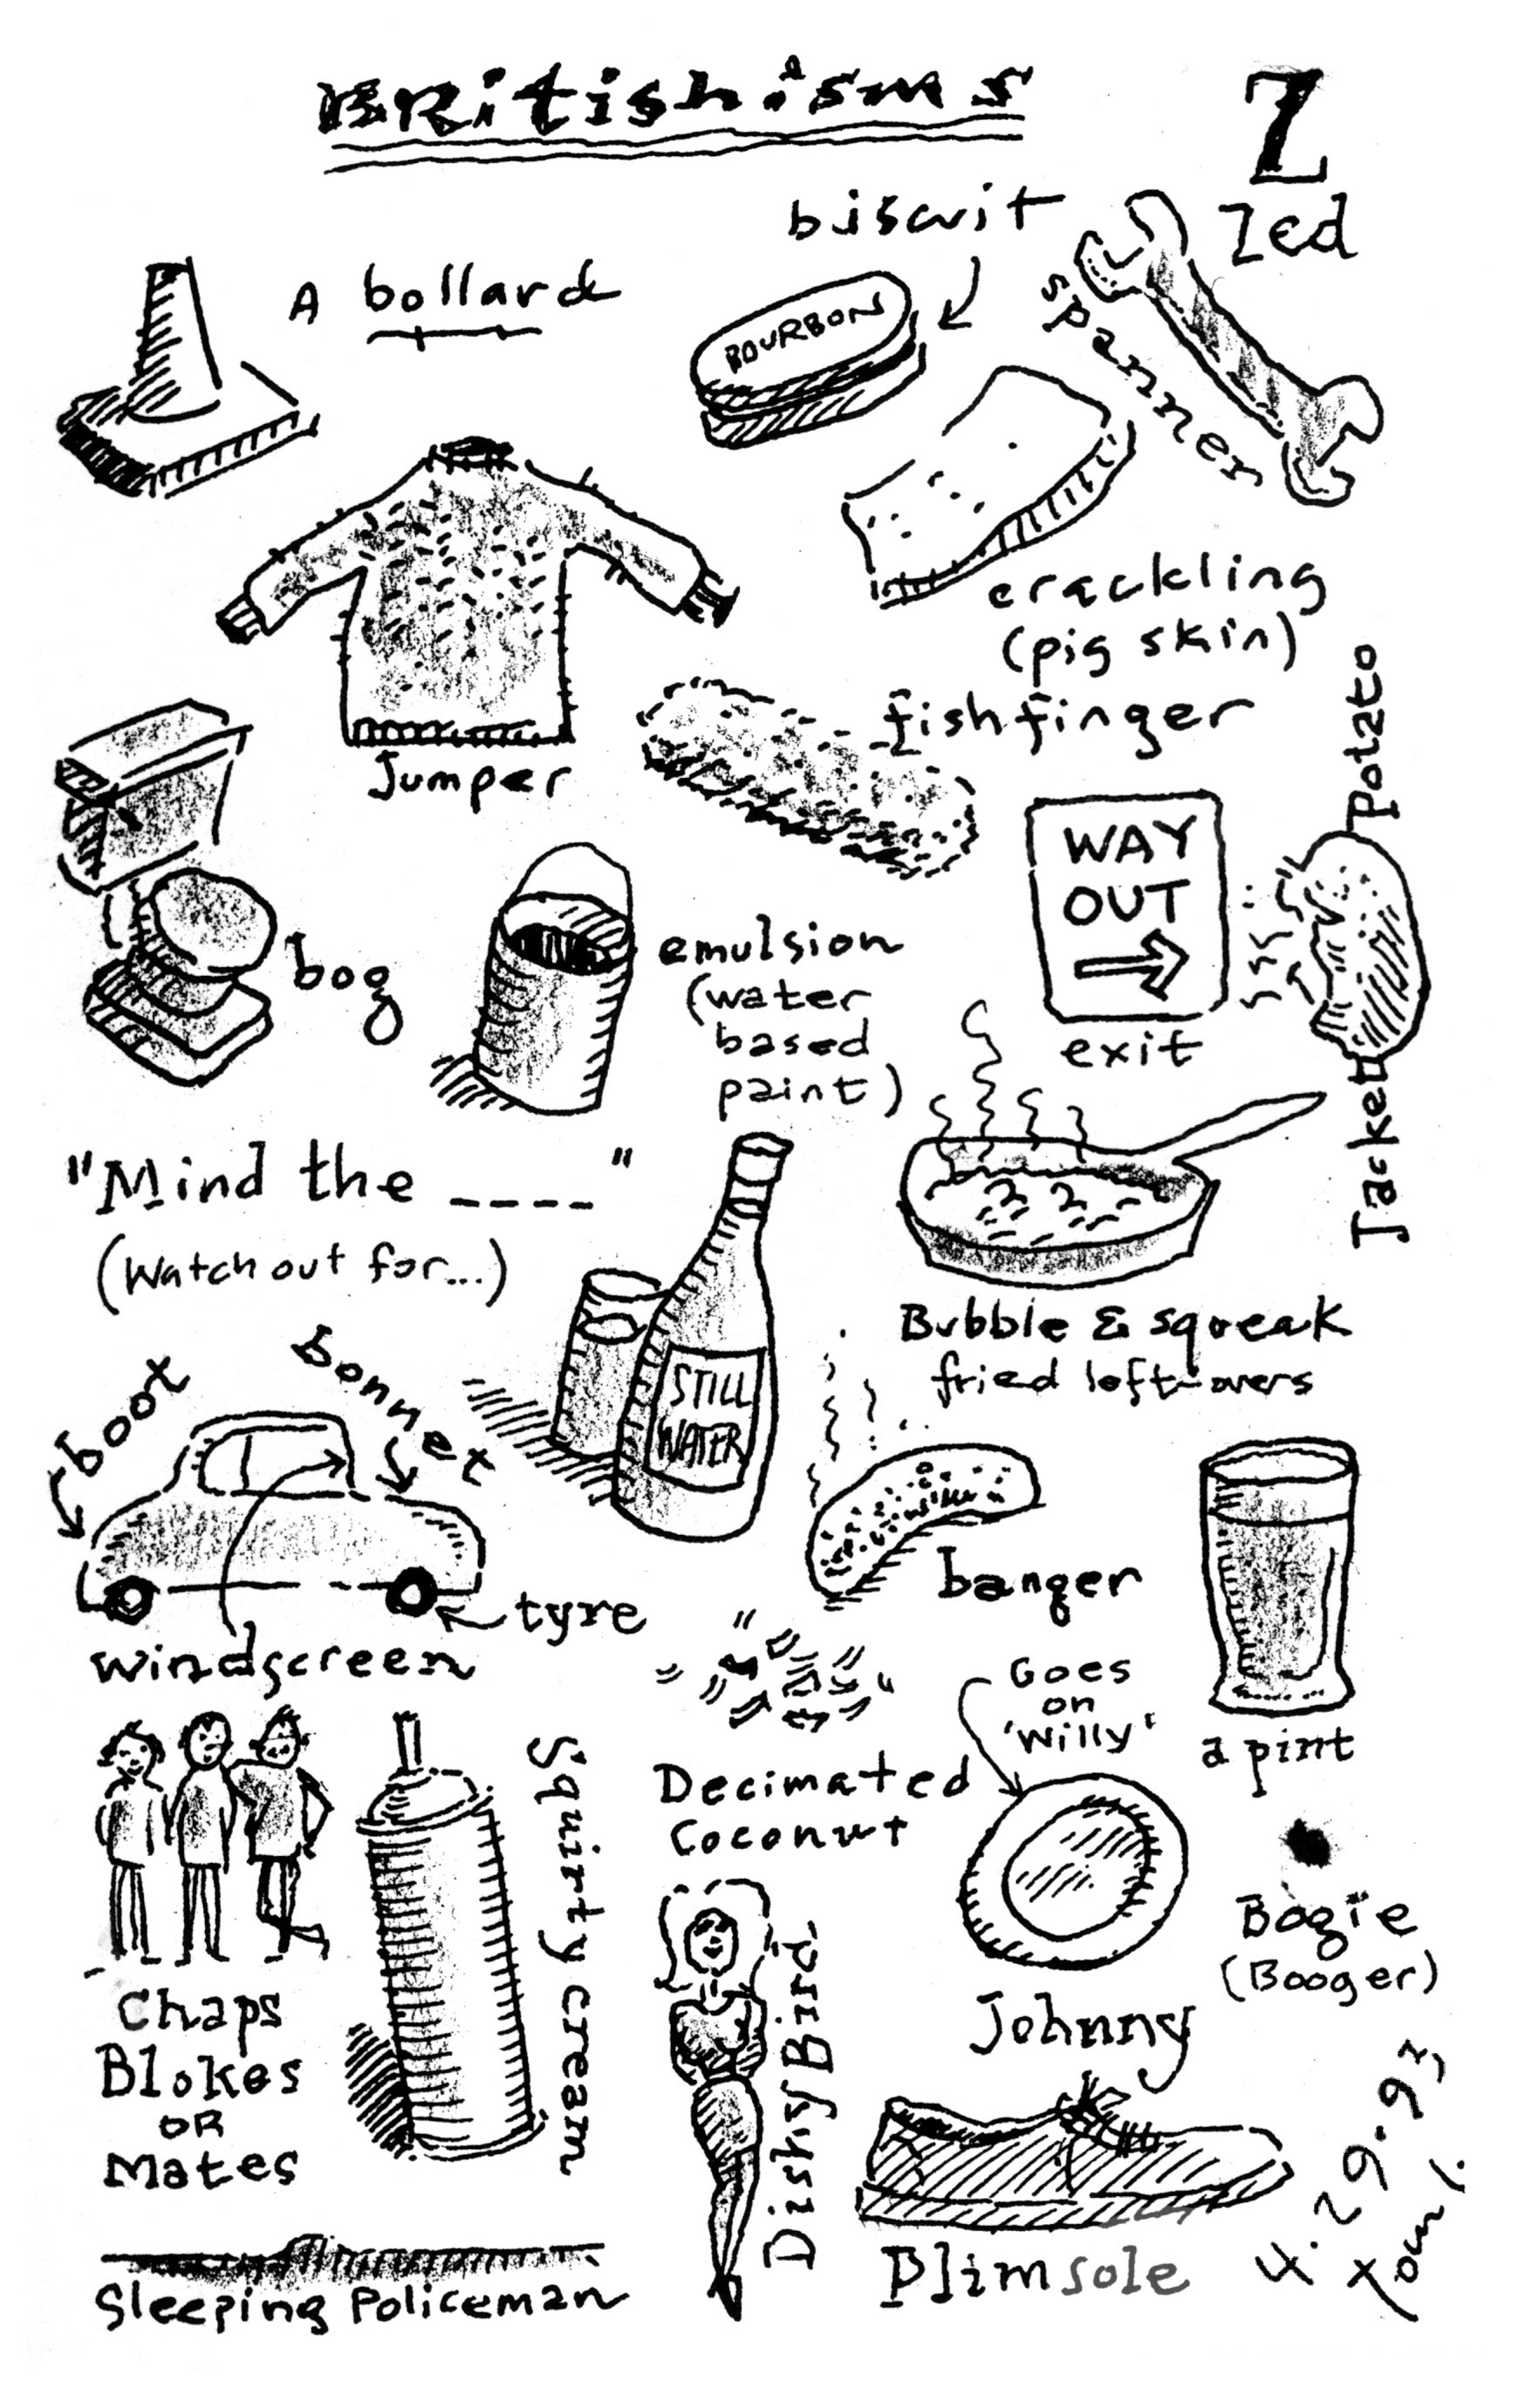 Britishisms
Z
Zed
biscuit
A bollard
BOURBON
spanner
crackling
(pig skin)
Jumper
fishfinger
Jacket Potato
WAY
OUT
exit
bog
emulsion
(water
based
paint)
"Mind the ----"
(Watch out for...)
Bubble & squeak
fried left-overs
boot
bonnet
STILL
WATER
tyre
windscreen
banger
a pint
Goes
on
'Willy'
Decimated
Coconut
Johnny
Bogie
(Booger)
Chaps
Blokes
OR
Mates
Squirty cream
Dishy Bird
Sleeping Policeman
Plimsole
4.29.93